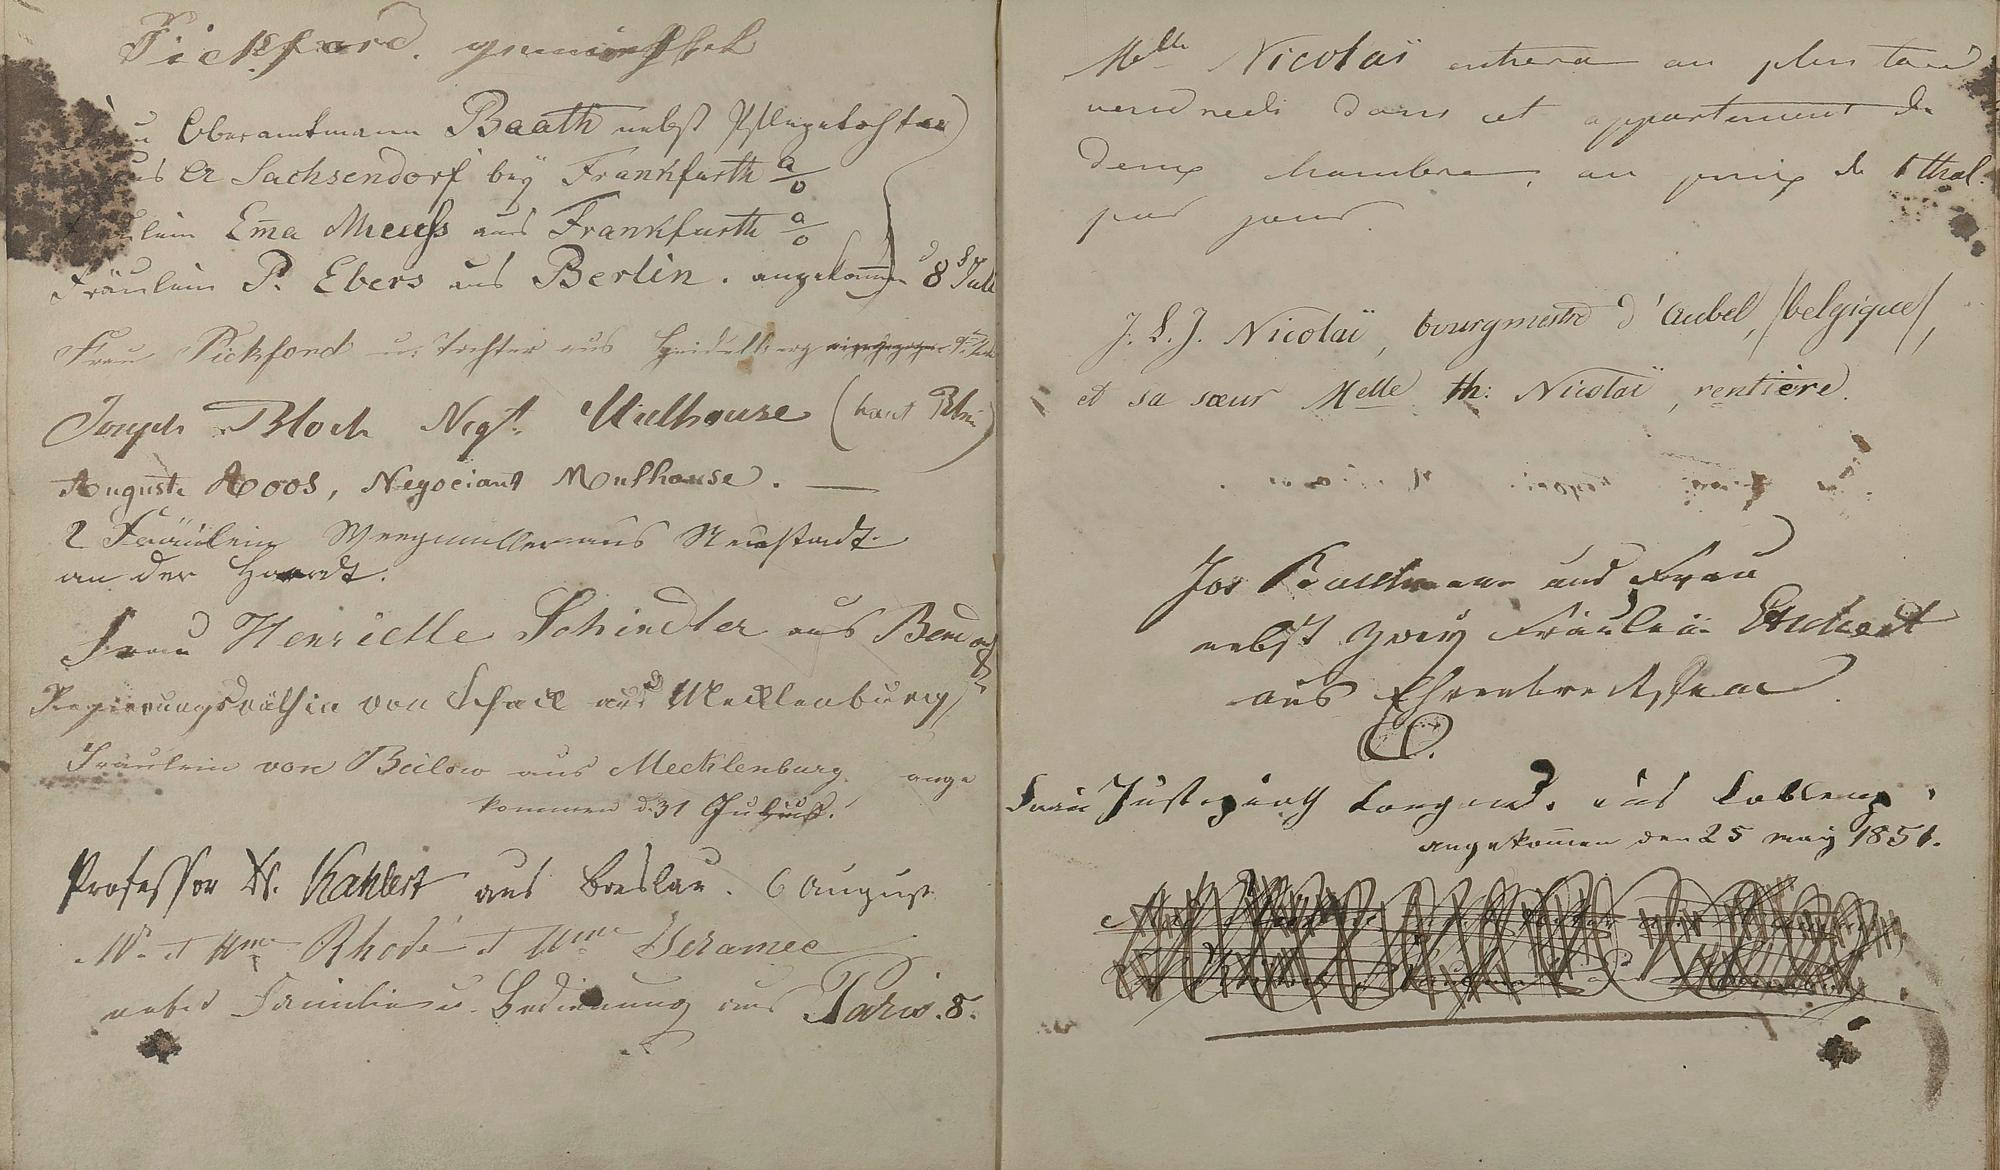 Pickford.
Oberamtmann Baath nebst Pflegetochter
aus Sachsendorf bey Frankfurth a/o
Em̄a Meuss aus Frankfurth a/o
Fräulein P. Ebers aus Berlin. angekom̄en d 8 Juli
Frau Pickford u. Tochter aus Heidelberg
Joseph Bloch Negt. Mulhouse (haut Rhin)
Auguste Roos, Negociant Mulhouse. —
2 Fräulein Weegmuller aus Neustadt
an der Haardt.
Frau Henriette Schindler aus
Regierungsräthin von Schack aus Mecklenburg
Fräulein von Bülow aus Mecklenburg. ange
kommen d. 31
Professor Dr. Kahlert aus Breslau. 6 August
Mr et Mme Rhodé et Mme
nebst Familie u. Bedienung aus Paris. 8.
Melle Nicolaï entrera au plus tard
vendredi dans cet appartement de
deux chambres, au prix de 1 thal.
par jour.
J. L. J. Nicolaï, bourgmestre d'Aubel, /belgique/,
et sa sœur Melle th: Nicolaï, rentière.
Jos und Frau
nebst zwey Fräulein
aus Ehrenbreitstein
Frau Justizrath aus Coblenz.
angekom̄en den 25 may 1851.